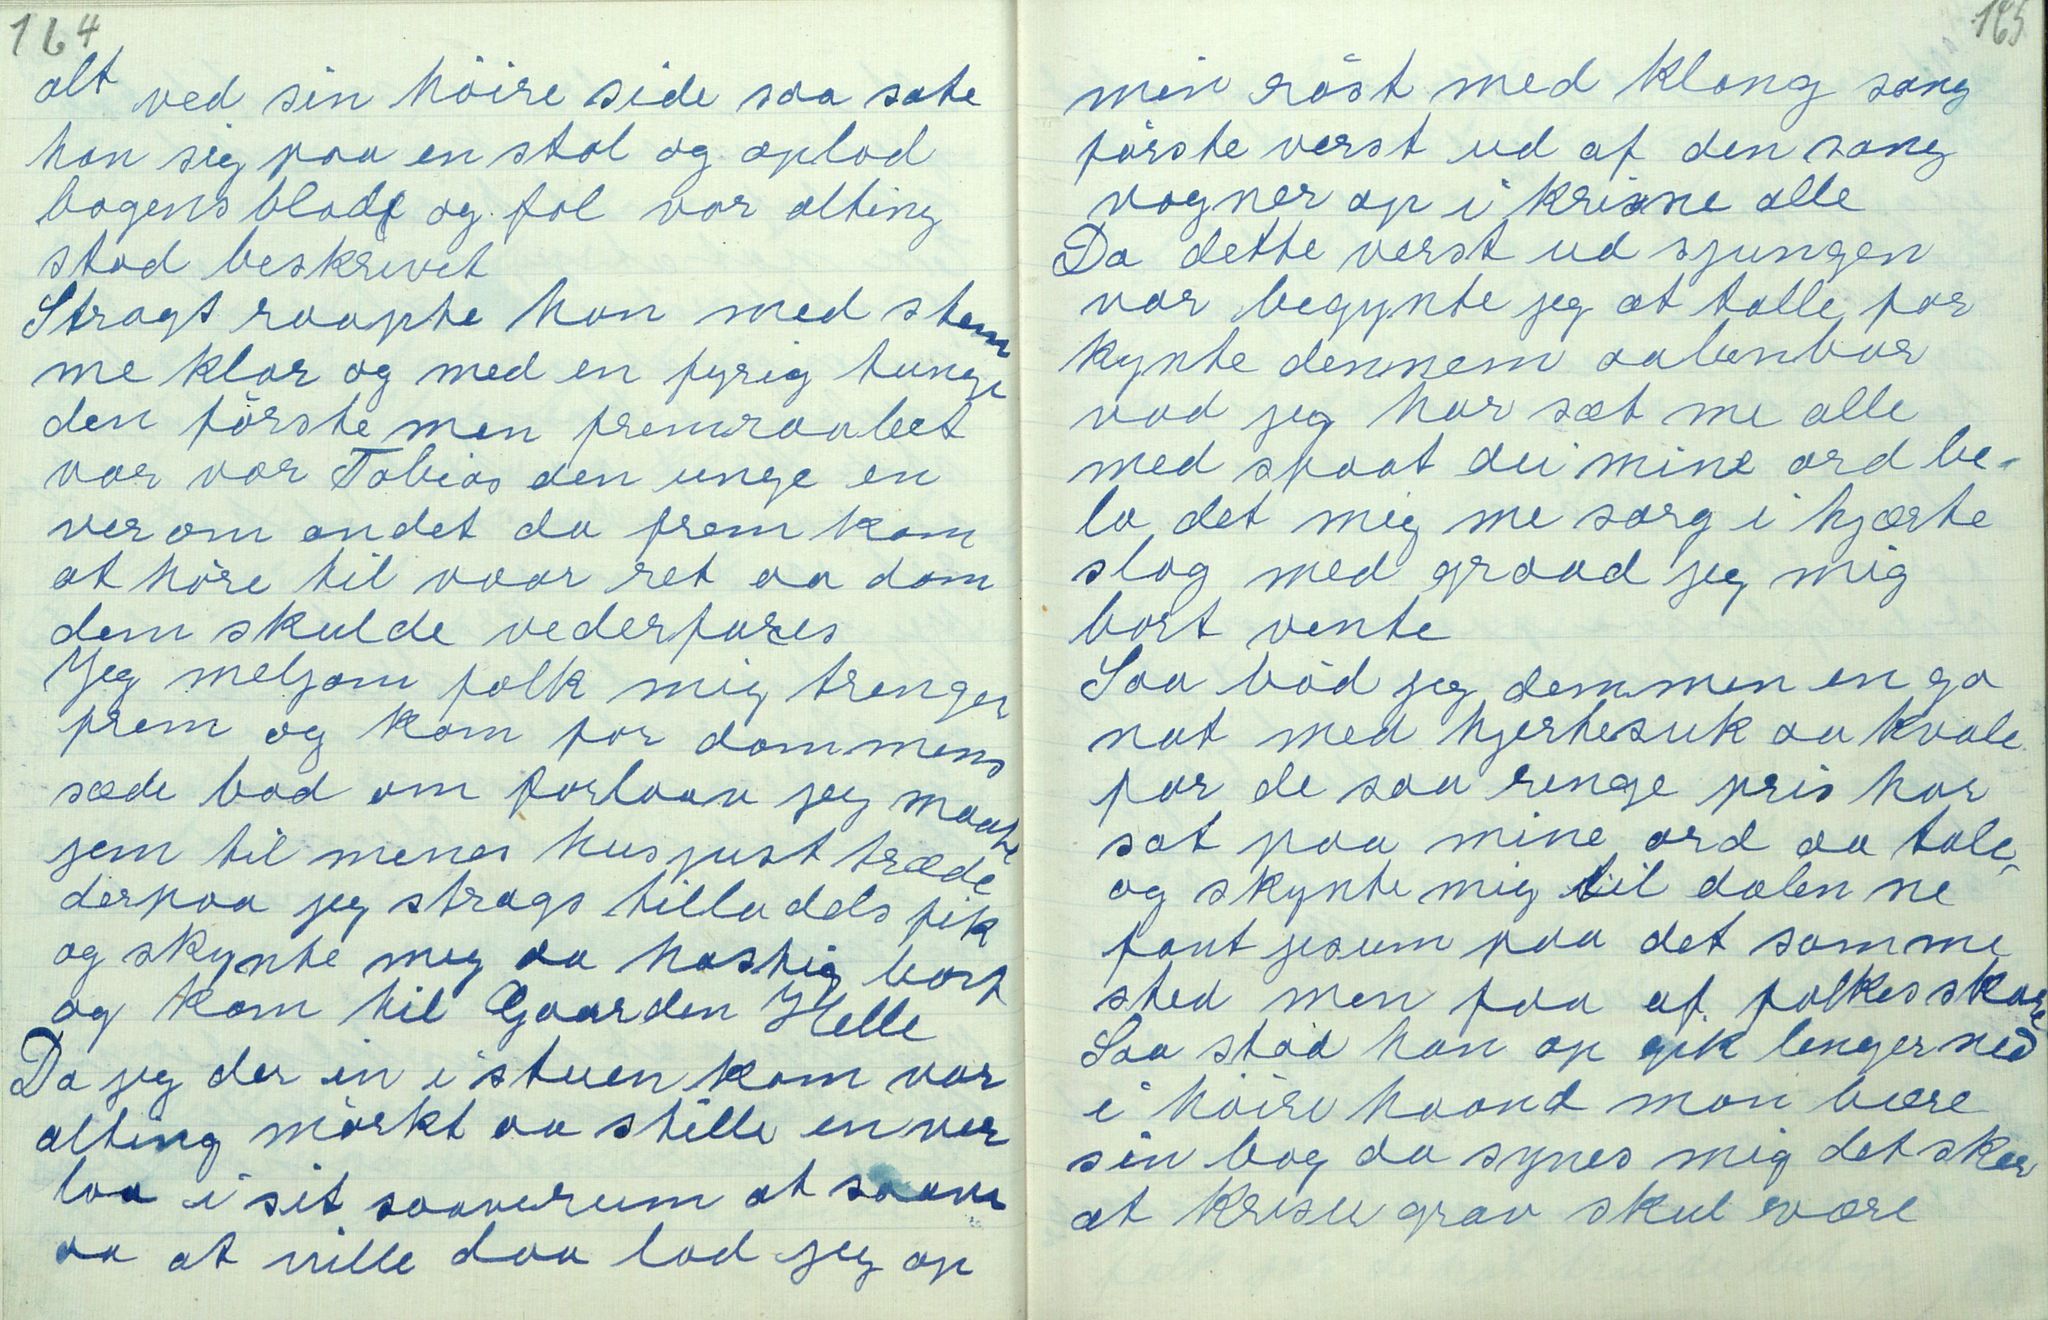 164
alt ved sin höire side saa sate
han sig paa en stol og oplod
bogens blade og fol var alting
stod beskrivet
Stragt raapte han med stem
me klar og med en fyrig tunge
den förste men fremraabet
var var Tobias den unge en
ver om andet da frem kom
at höre til vaar ret aa dom
dem skulde vederfares
Jeg meljom folk mig trenger
frem og kom for dommens
sæde bad om forlaav jeg maate
jem til menes hus just træde
derpaa jeg strags tilladels fik
og skynte mig aa hastig bort
og kom til Gaarden Helle
Da jeg der in i stuen kom var
alting mörkt aa stille en ver
laa i sit saaverum at saave
aa at ville daa lod jeg op
165
min röst med klang sang
förste verst ud af den sang
vagner op i krisne alle
Da dette verst ud sjungen
var begynte jeg at talle for
kynte dennem aabenbar
vad jeg har sæt me alle
med spaat dei mine ord be-
lo det mig me sorg i hjærte
slog med graad jeg mig
bort vente
Saa böd jeg demmen en go
nat med hjertesuk aa kvale
for de saa renge pris har
sat paa mine ord aa tale
og skynte mig til dalen ne
fant jesum paa det samme
sted men faa af folkes skare
Saa stod han op gik lenger ned
i höire haand mon bære
sin bog da synes mig det sker
at krisu grav skul være